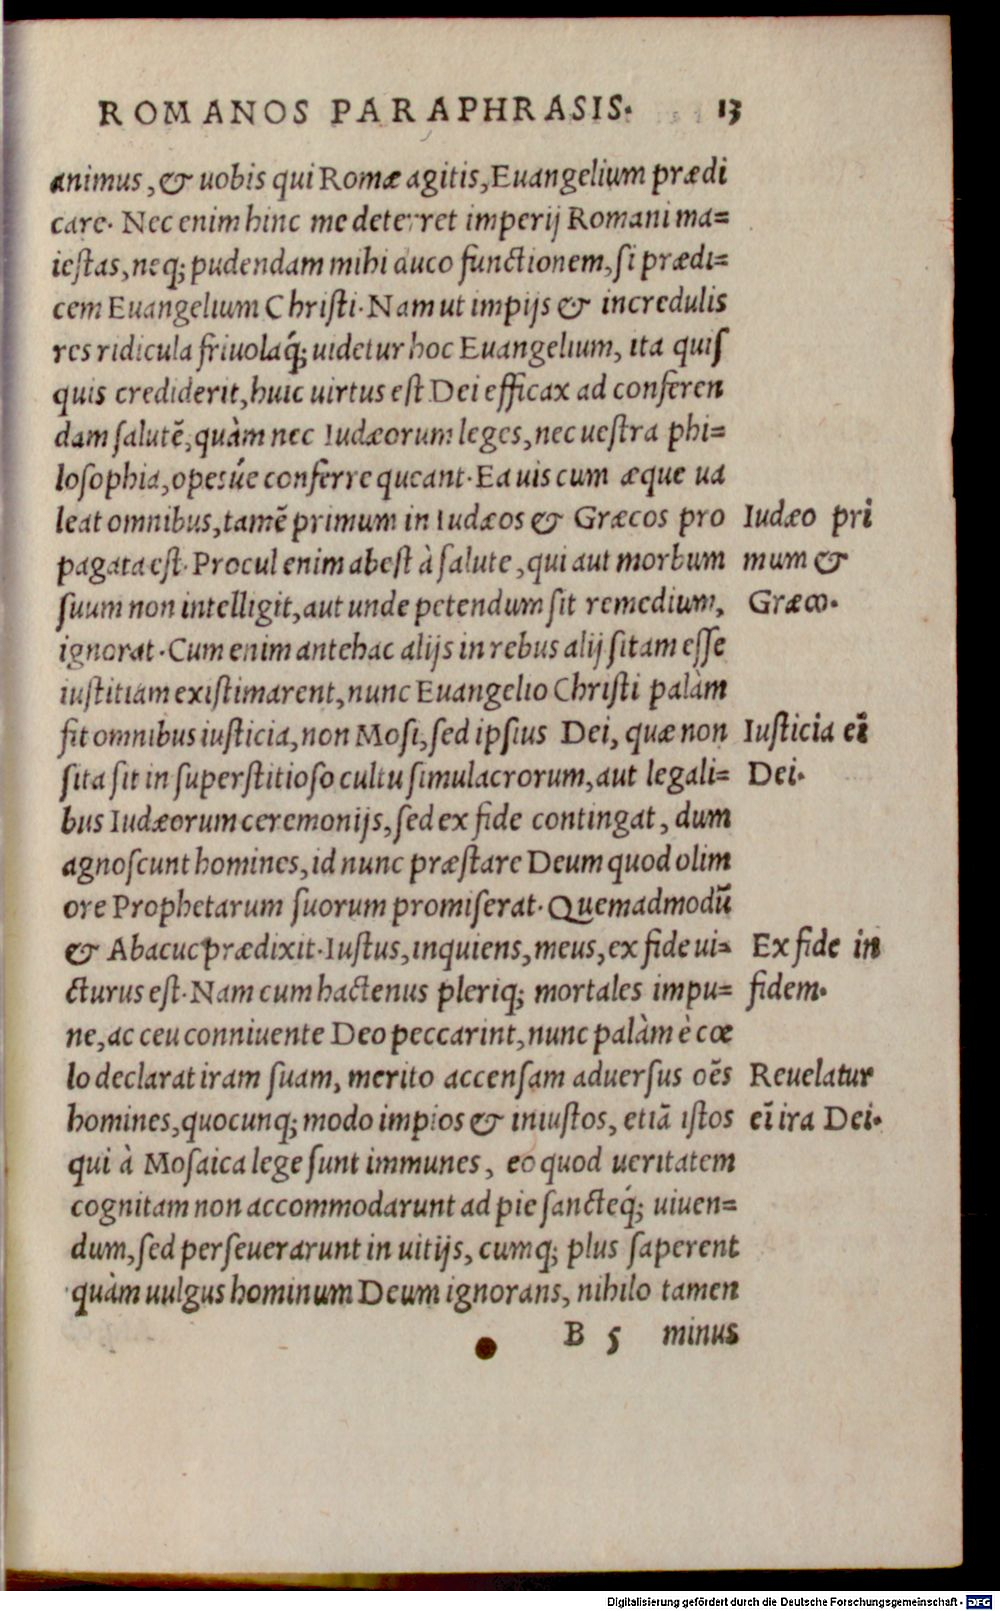 ROMANOS PARAPHRASIS. 13
animus, & uobis qui Romæ agitis, Euangelium prædi
care. Nec enim hinc me deterret imperij Romani ma=
iestas, neq; pudendam mihi duco functionem, si prædi=
cem Euangelium Christi. Nam ut impijs & incredulis
res ridicula friuolaq́; uidetur hoc Euangelium, ita quiſ
quis crediderit, huic uirtus est Dei efficax ad conferen
dam salutē, quàm nec Iudæorum leges, nec uestra phi=
losophia, opesúe conferre queant. Ea uis cum æque ua
leat omnibus, tamē primum in Iudæos & Græcos pro
pagata est. Procul enim abest à salute, qui aut morbum
suum non intelligit, aut unde petendum sit remedium,
ignorat. Cum enim antehac alijs in rebus alij sitam esse
iustitiam existimarent, nunc Euangelio Christi palàm
fit omnibus iusticia, non Mosi, sed ipsius Dei, quæ non
sita sit in superstitioso cultu simulacrorum, aut legali=
bus Iudæorum ceremonijs, sed ex fide contingat, dum
agnoscunt homines, id nunc præstare Deum quod olim
ore Prophetarum suorum promiserat. Quemadmodū
& Abacuc prædixit. Iustus, inquiens, meus, ex fide ui=
cturus est. Nam cum hactenus pleriq; mortales impu=
ne, ac ceu conniuente Deo peccarint, nunc palàm è cœ
lo declarat iram suam, merito accensam aduersus oēs
homines, quocunq; modo impios & iniustos, etiā istos
qui à Mosaica lege sunt immunes, eo quod ueritatem
cognitam non accommodarunt ad pie sancteq́; uiuen=
dum, sed perseuerarunt in uitijs, cumq; plus saperent
quàm uulgus hominum Deum ignorans, nihilo tamen
B 5 minus
Iudæo pri
mum &
Græco.
Iusticia eī
Dei.
Ex fide in
fidem.
Reuelatur
eī ira Dei.
Digitalisierung gefördert durch die Deutsche Forschungsgemeinschaft - DFG